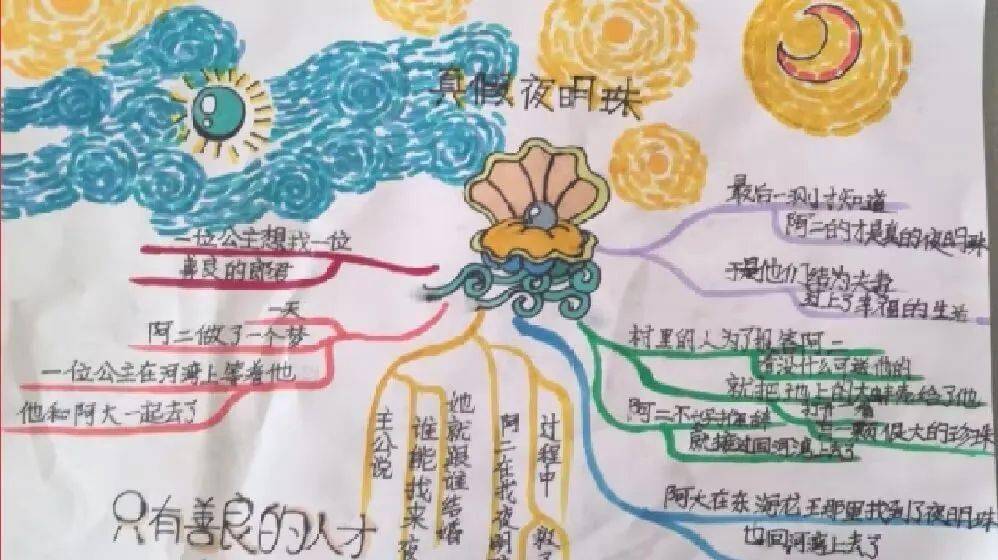 真假夜明珠
一位公主想找一位
善良的郎君
一天
阿二做了一个梦
一位公主在河湾上等着他
他和阿大一起去了
主公说
谁能找来夜
她就跟谁结婚
阿二在找夜明
过程中
村里的人为了报答阿二
有没什么可送他的
就把地上的大蚌壳给了他
打开一看
一颗很大的珍珠
阿二不好推辞
就接过回河湾上去了
阿大在东海龙王那里找到了夜明珠
也回河湾上去了
最后一测才知道
阿二的才是真的夜明珠
于是他们结为夫妻
过上了幸福的生活
只有善良的人才